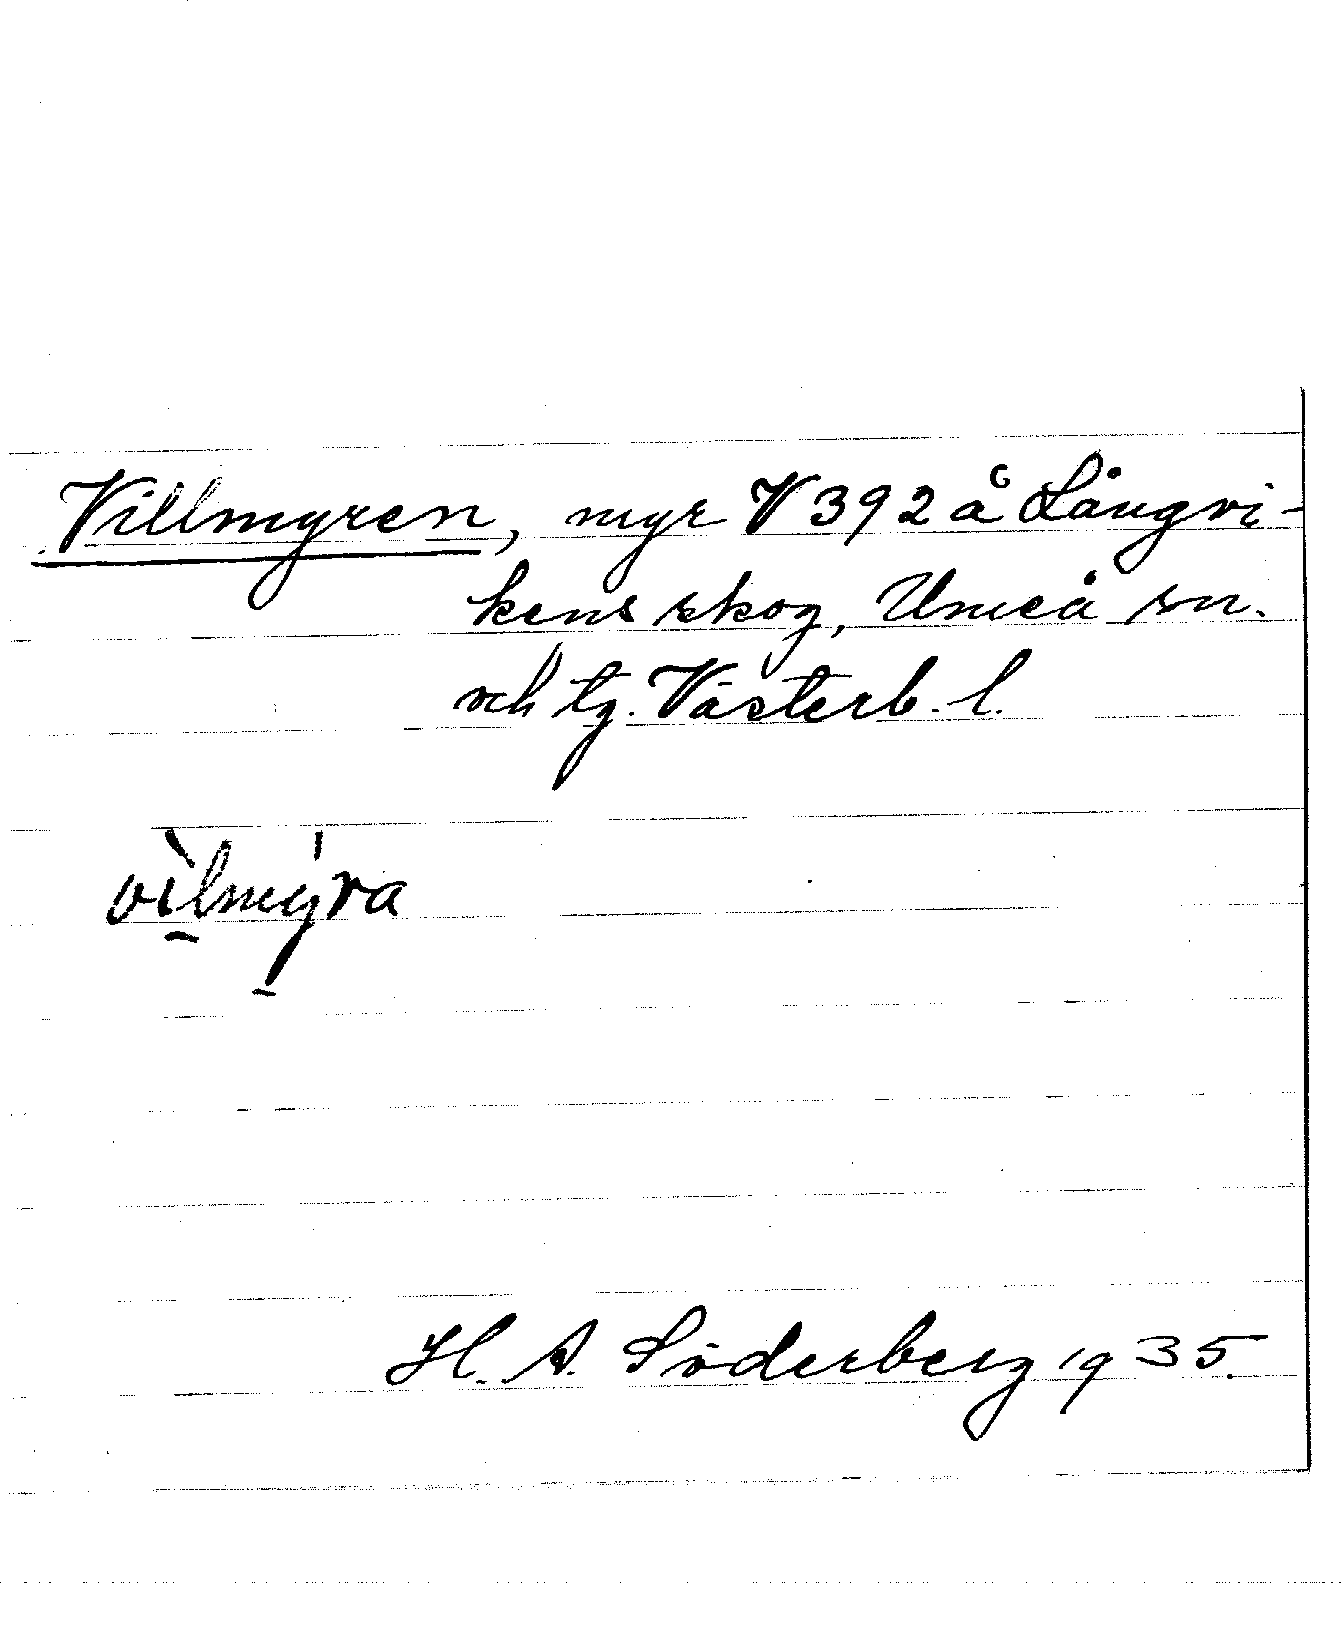 Villmyren, myr V 392 å Långvi-
kens skog, Umeå sn.
och tg. Västerb. l.
vìlmy̍ra
H. A. Söderberg 1935.